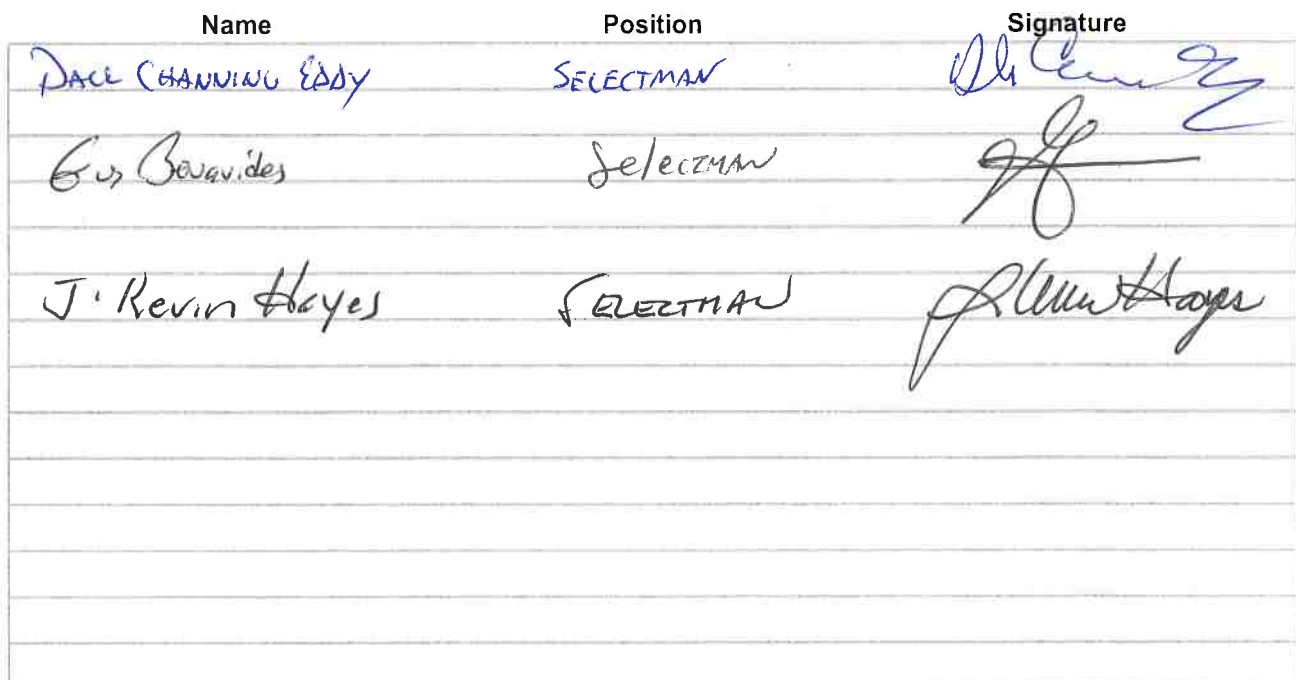 Name Position Signature
DALE CHANNING EDDY SELECTMAN
Gus Benavides SelecTMAN
J. Kevin Hayes SELECTMAN J. Kevin Hayes